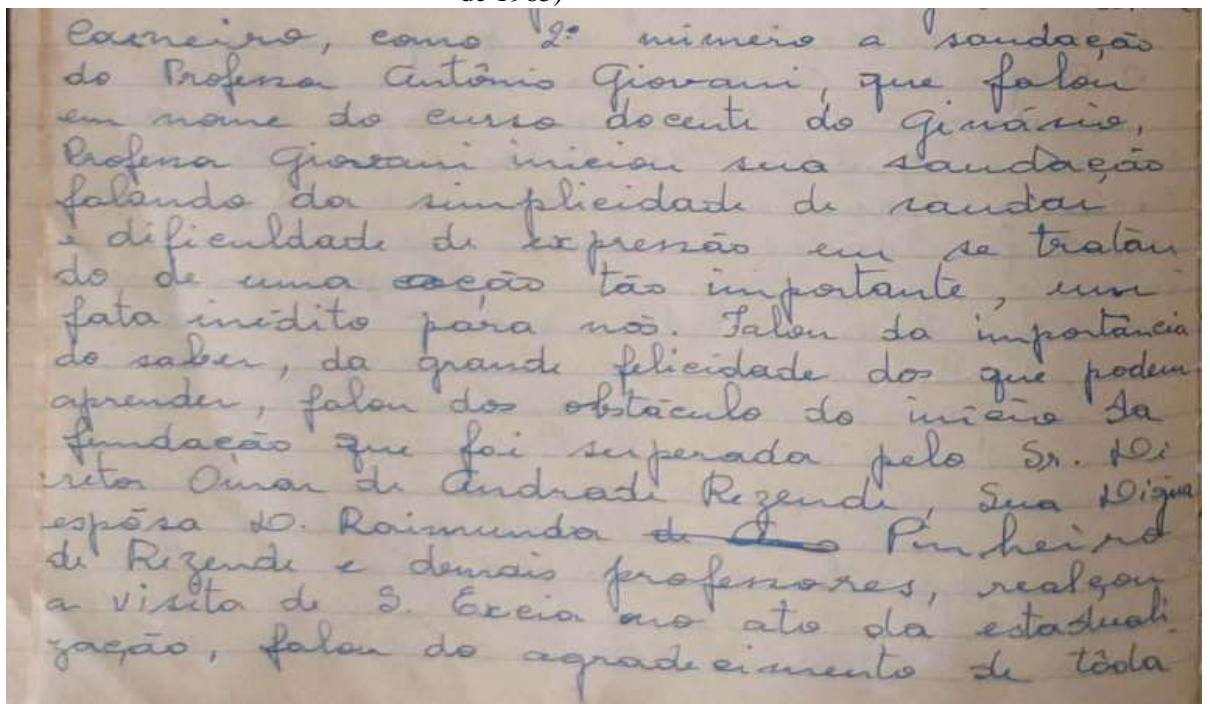 de 1965)
Carneiro, como 2º número a saudação
do Professor Antônio Giovani, que falou
em nome do curso docente do Ginásio,
Professor Giovani iniciou sua saudação
falando da simplicidade de saudar
e dificuldade de expressão em se tratan
do de uma ocação tão importante, um
fato inédito para nós. Falou da importância
do saber, da grande felicidade dos que podem
aprender, falou dos obstáculo do início da
fundação que foi superada pelo Sr. Di
retor Oimar de Andrade Rezende, Sua Digna
espôsa D. Raimunda Pinheiro
de Rezende e demais professores, realçou
a visita de S. Excia no ato da estaduali
zação, falou do agradecimento de tôda